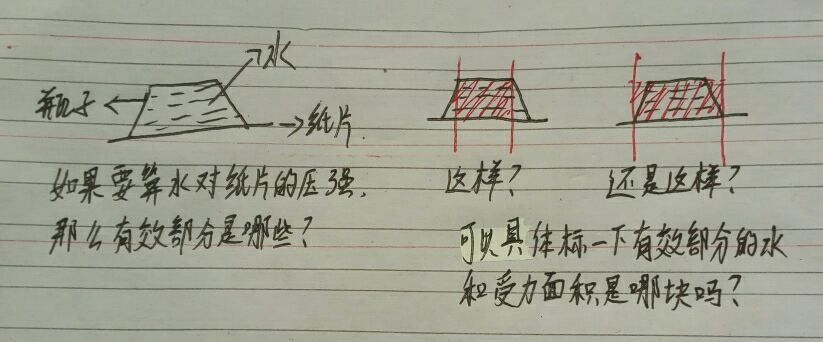 水
瓶子
纸片
如果要算水对纸片的压强,
那么有效部分是哪些?
这样?
还是这样?
可以具体标一下有效部分的水
和受力面积是哪块吗?